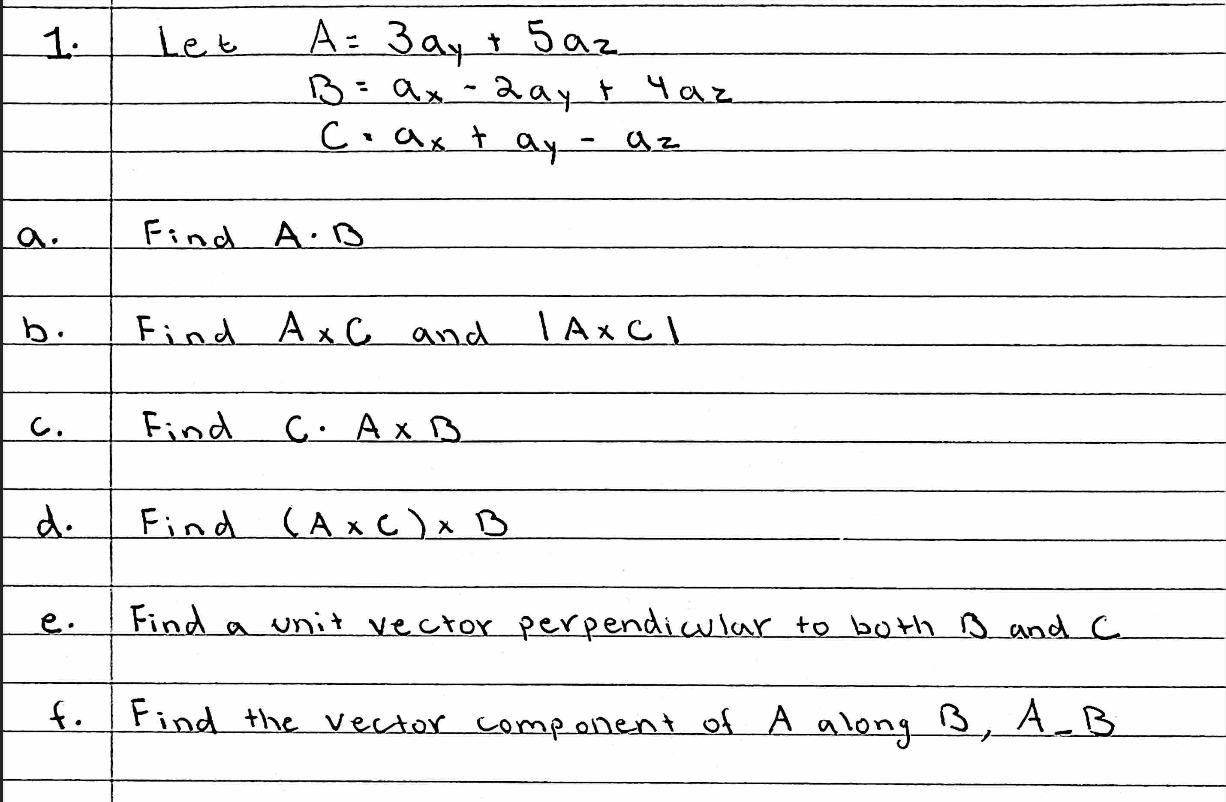 1. Let A = 3ay + 5az
B = ax - 2ay + 4az
C = ax + ay - az
a. Find A · B
b. Find A x C and |A x C|
c. Find C · A x B
d. Find (A x C) x B
e. Find a unit vector perpendicular to both B and C
f. Find the vector component of A along B, A_B